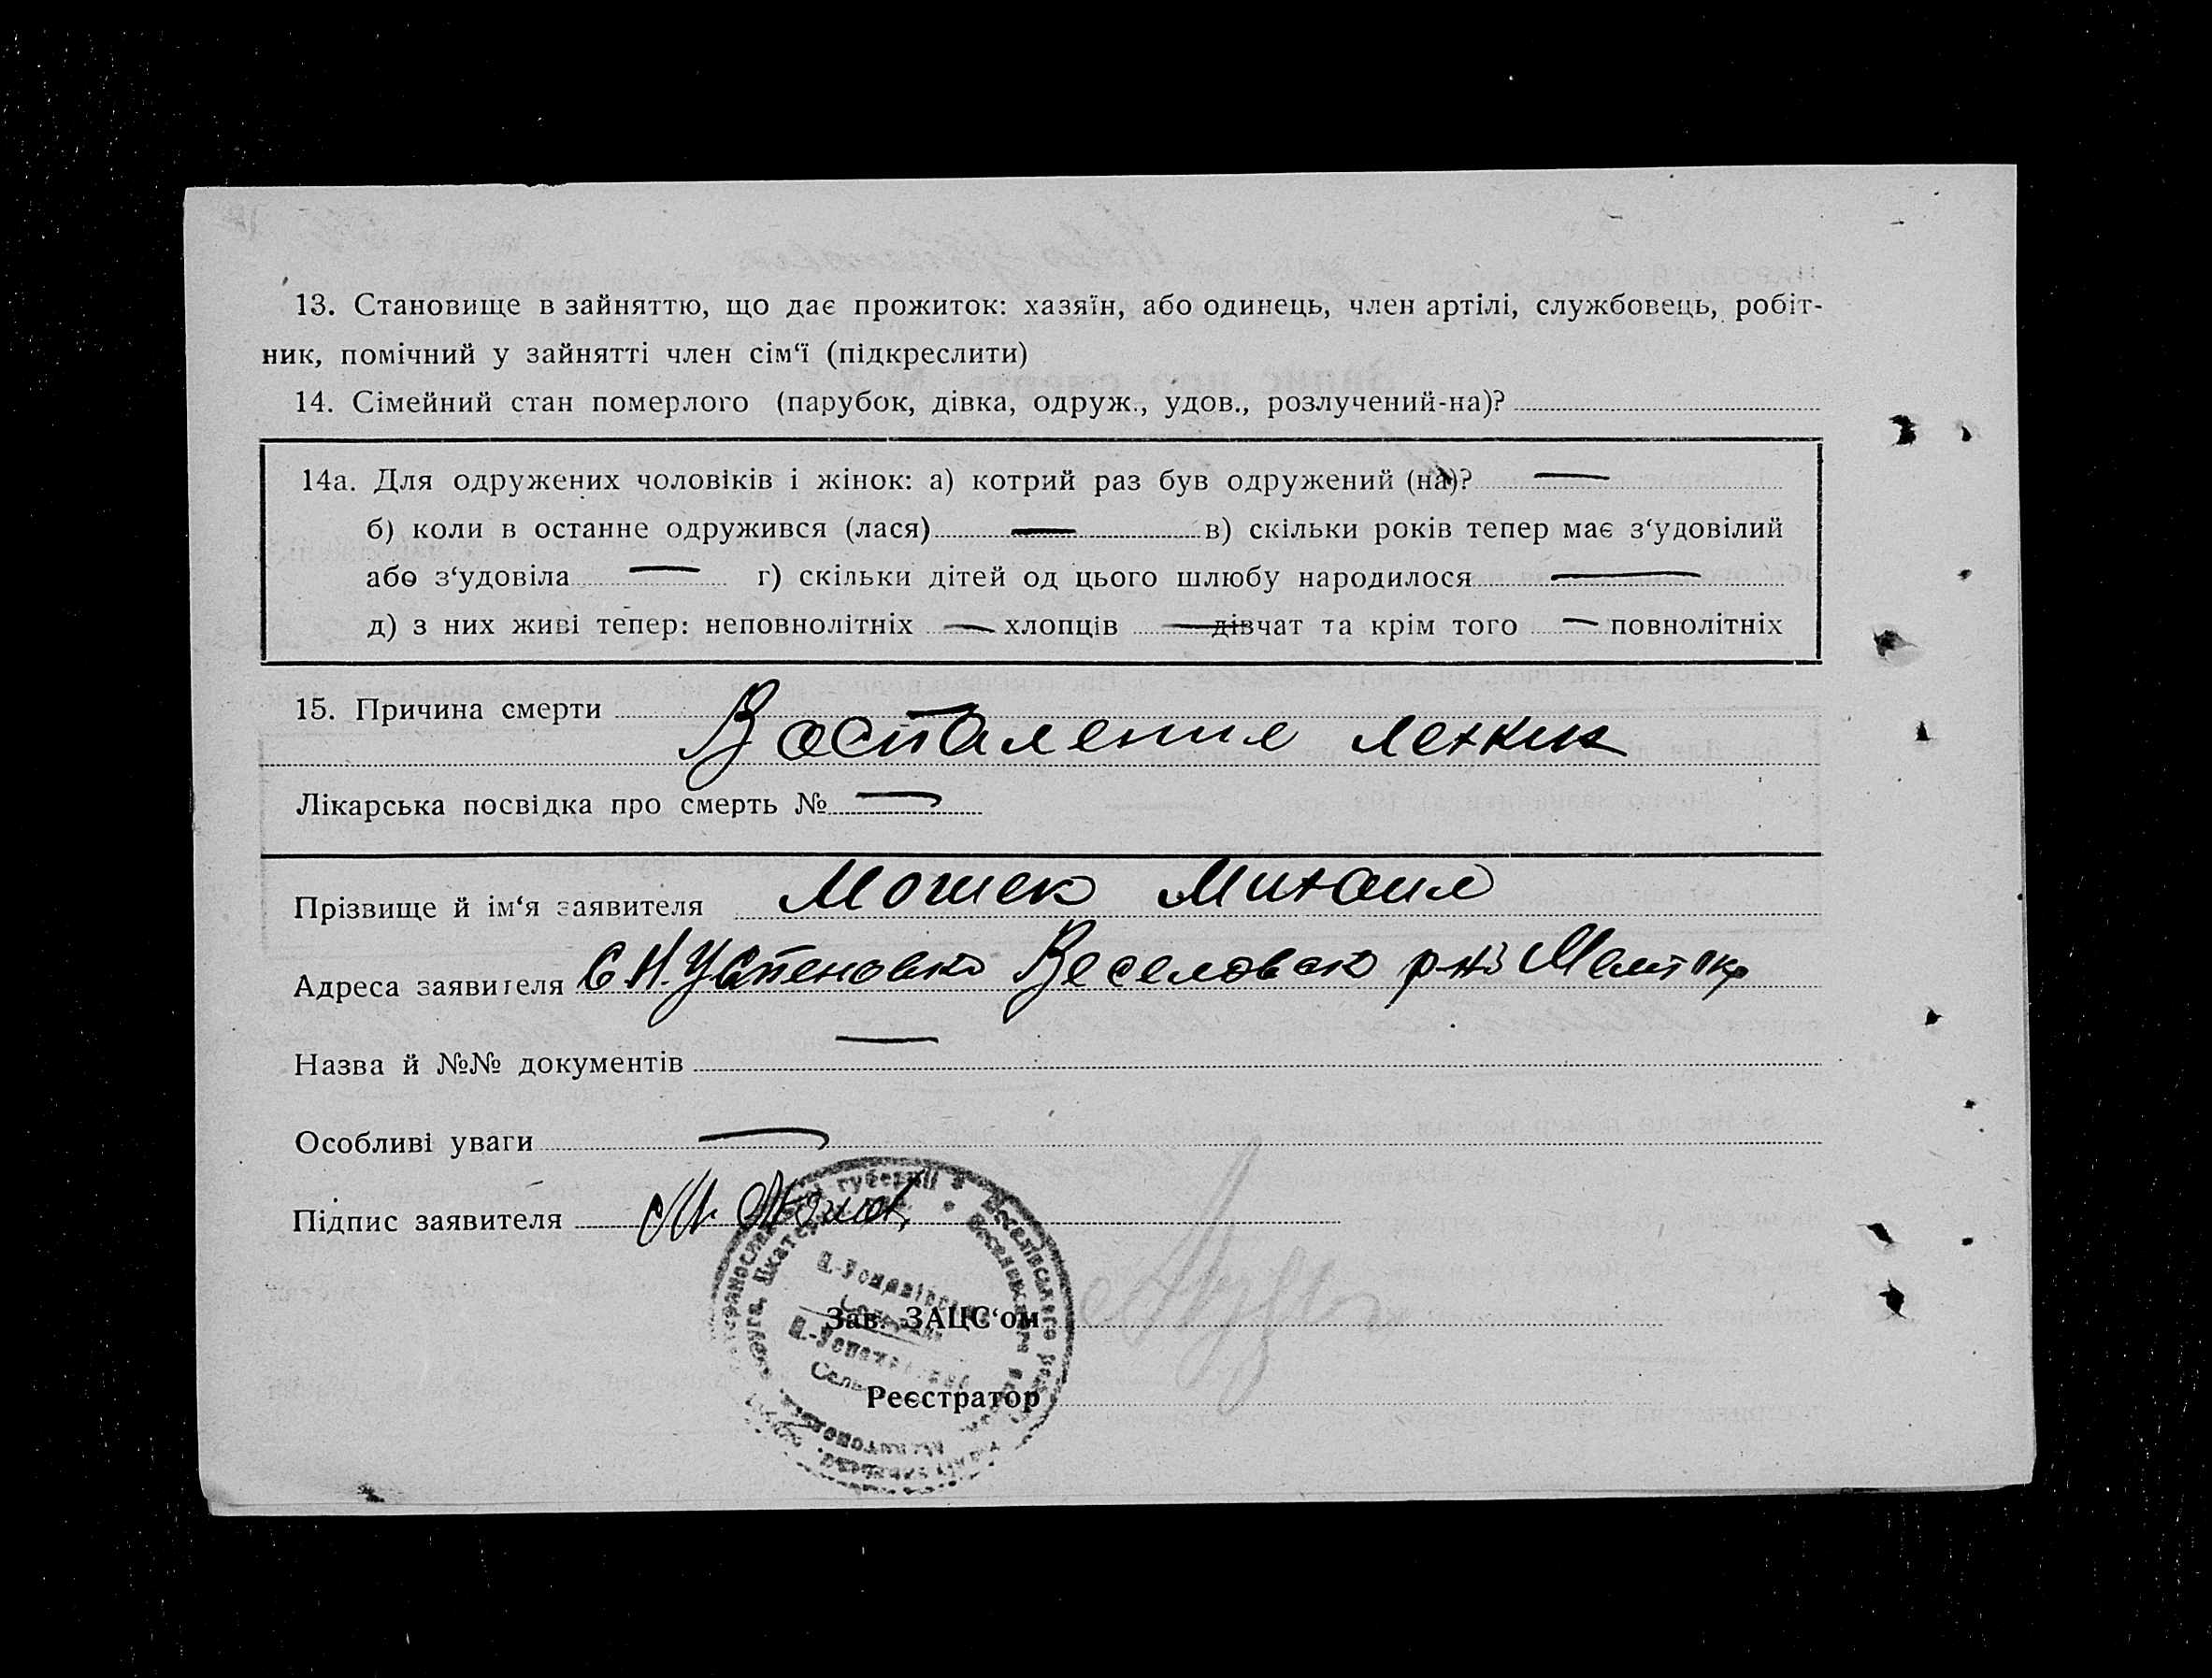 13. Становище в зайняттю, що дає прожиток: хазяїн, або одинець, член артілі, службовець, робіт-
ник, помічний у зайнятті член сім‘ї (підкреслити)
14. Сімейний стан померлого (парубок, дівка, одруж., удов., розлучений-на)?
14а. Для одружених чоловіків і жінок: а) котрий раз був одружений (на)? —
б) коли в останне одружився (лася) — в) скільки років тепер має з‘удовілий
або з‘удовіла — г) скільки дітей од цього шлюбу народилося —
д) з них живі тепер: неповнолітніх — хлопців — дівчат та крім того — повнолітніх
15. Причина смерти
Воспаление легких
Лікарська посвідка про смерть № —
Прізвище й ім‘я заявителя Мошек Михаил
Адреса заявителя с Н. Успеновка Веселовск р-на Мелит окр
Назва й №№ документів —
Особливі уваги —
Підпис заявителя М.
Зав. ЗАЦС‘ом
Реєстратор